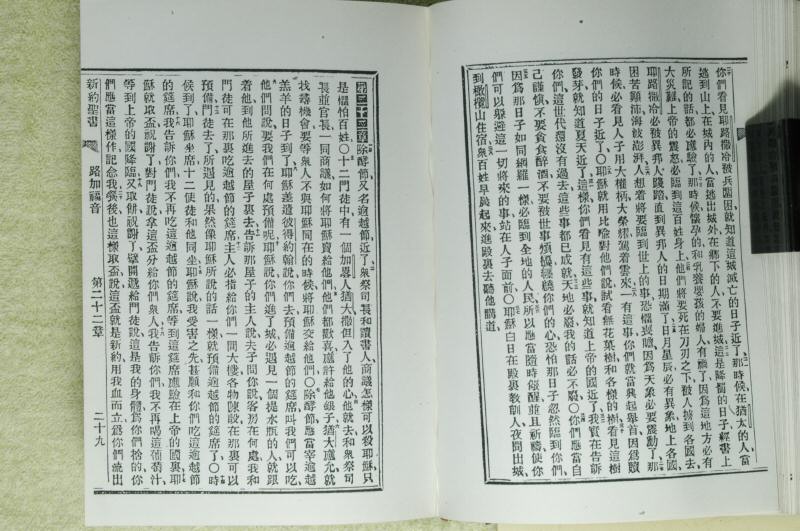 你們看見耶路撒冷被兵圍困就知道這城滅亡的日子近了那時候在猶太的人當
逃到山上在城內的人當逃出城外在鄉下的人不要進城這是降罰的日子經書上
所記的話都必應驗了那時候懷孕的和乳養嬰孩的婦人有禍了因爲這地方必有
大災難上帝的震怒必臨到這百姓身上他們將要死在刀刃之下被人擄到各國去
耶路撒冷必被異邦人踐踏直到異邦人的日期滿了日月星辰必有異象地上各國
困苦顛沛海波澎湃人想着將要臨到世上的事恐懼喪膽因爲天象必要震動了那
時候必看見人子用大權柄大榮耀駕着雲來一有這事你們就當興起舉首因爲贖
你們的日子近了〇耶穌就用比喻對他們說試看無花菓樹和各樣的樹看見這樹
發芽就知道夏天近了這樣你們看見有這些事就知道上帝的國近了我實在告訴
你們這世代還沒有過去這些事都已成就天地必廢我的話必不廢〇你們應當自
己謹慎不要貪食醉酒不要被世事煩擾纏繞你們的心恐怕那日子忽然臨到你們
因爲那日子如同網羅一樣必臨到全地的人民所以應當隨時儆醒並且祈禱使你
們可以躱避這一切將來的事站在人子面前〇耶穌白日在殿裏教訓人夜間出城
到橄欖山住宿衆百姓早晨起來進殿裏去聽他講道
第二十二章除酵節又名逾越節近了衆祭司長和讀書人商議怎樣可以殺耶穌只
是懼怕百姓〇十二門徒中有一個加畧人猶大撒但入了他的心他就去和衆祭司
長並官長一同商議如何將耶穌賣給他們他們都歡喜應許給他銀子猶大應允就
找尋機會要等衆人不與耶穌同在的時候將耶穌交給他們〇除酵節應當宰逾越
羔羊的日子到了耶穌差遣彼得約翰說你們去預備逾越節的筵席叫我們可以吃
他們問說要我們在何處預備呢耶穌說你們進了城必遇見一個提水瓶的人就跟
着他到他所進去的屋子裏去告訴那屋子的主人說夫子問你說客房在何處我和
門徒可在那裏吃逾越節的筵席主人必指給你們一間大樓各物陳設在那裏可以
預備門徒去了所遇見的果然像耶穌所說的話一樣就預備逾越節的筵席了〇時
候到了耶穌坐席十二使徒和他同坐耶穌說我受害之先甚願和你們吃這逾越節
的筵席我告訴你們我不再吃這逾越節的筵席等到這筵席應驗在上帝的國裏耶
穌就取盃祝謝了對門徒說拿這盃分給你們衆人我告訴你們我不再喝這葡萄汁
等到上帝的國降臨又取餅祝謝了擘開遞給門徒說這是我的身體爲你們捨的你
們應當這樣作記念我喫後也這樣取盃說這盃就是新約用我血而立爲你們流出
新約聖書 路加福音 第二十二章 二十九